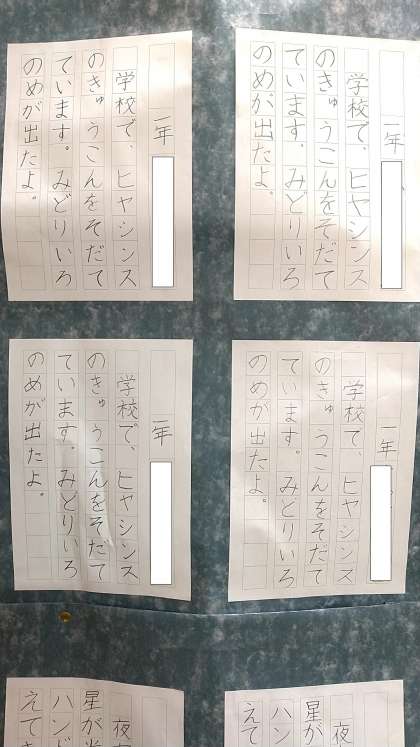 一年
学校で、ヒヤシンス
のきゅうこんをそだて
ています。みどりいろ
のめが出たよ。
一年
学校で、ヒヤシンス
のきゅうこんをそだて
ています。みどりいろ
のめが出たよ。
一年
学校で、ヒヤシンス
のきゅうこんをそだて
ています。みどりいろ
のめが出たよ。
一年
学校で、ヒヤシンス
のきゅうこんをそだて
ています。みどりいろ
のめが出たよ。
夜
星が
ハン
えて
夜
星が
ハンド
えて